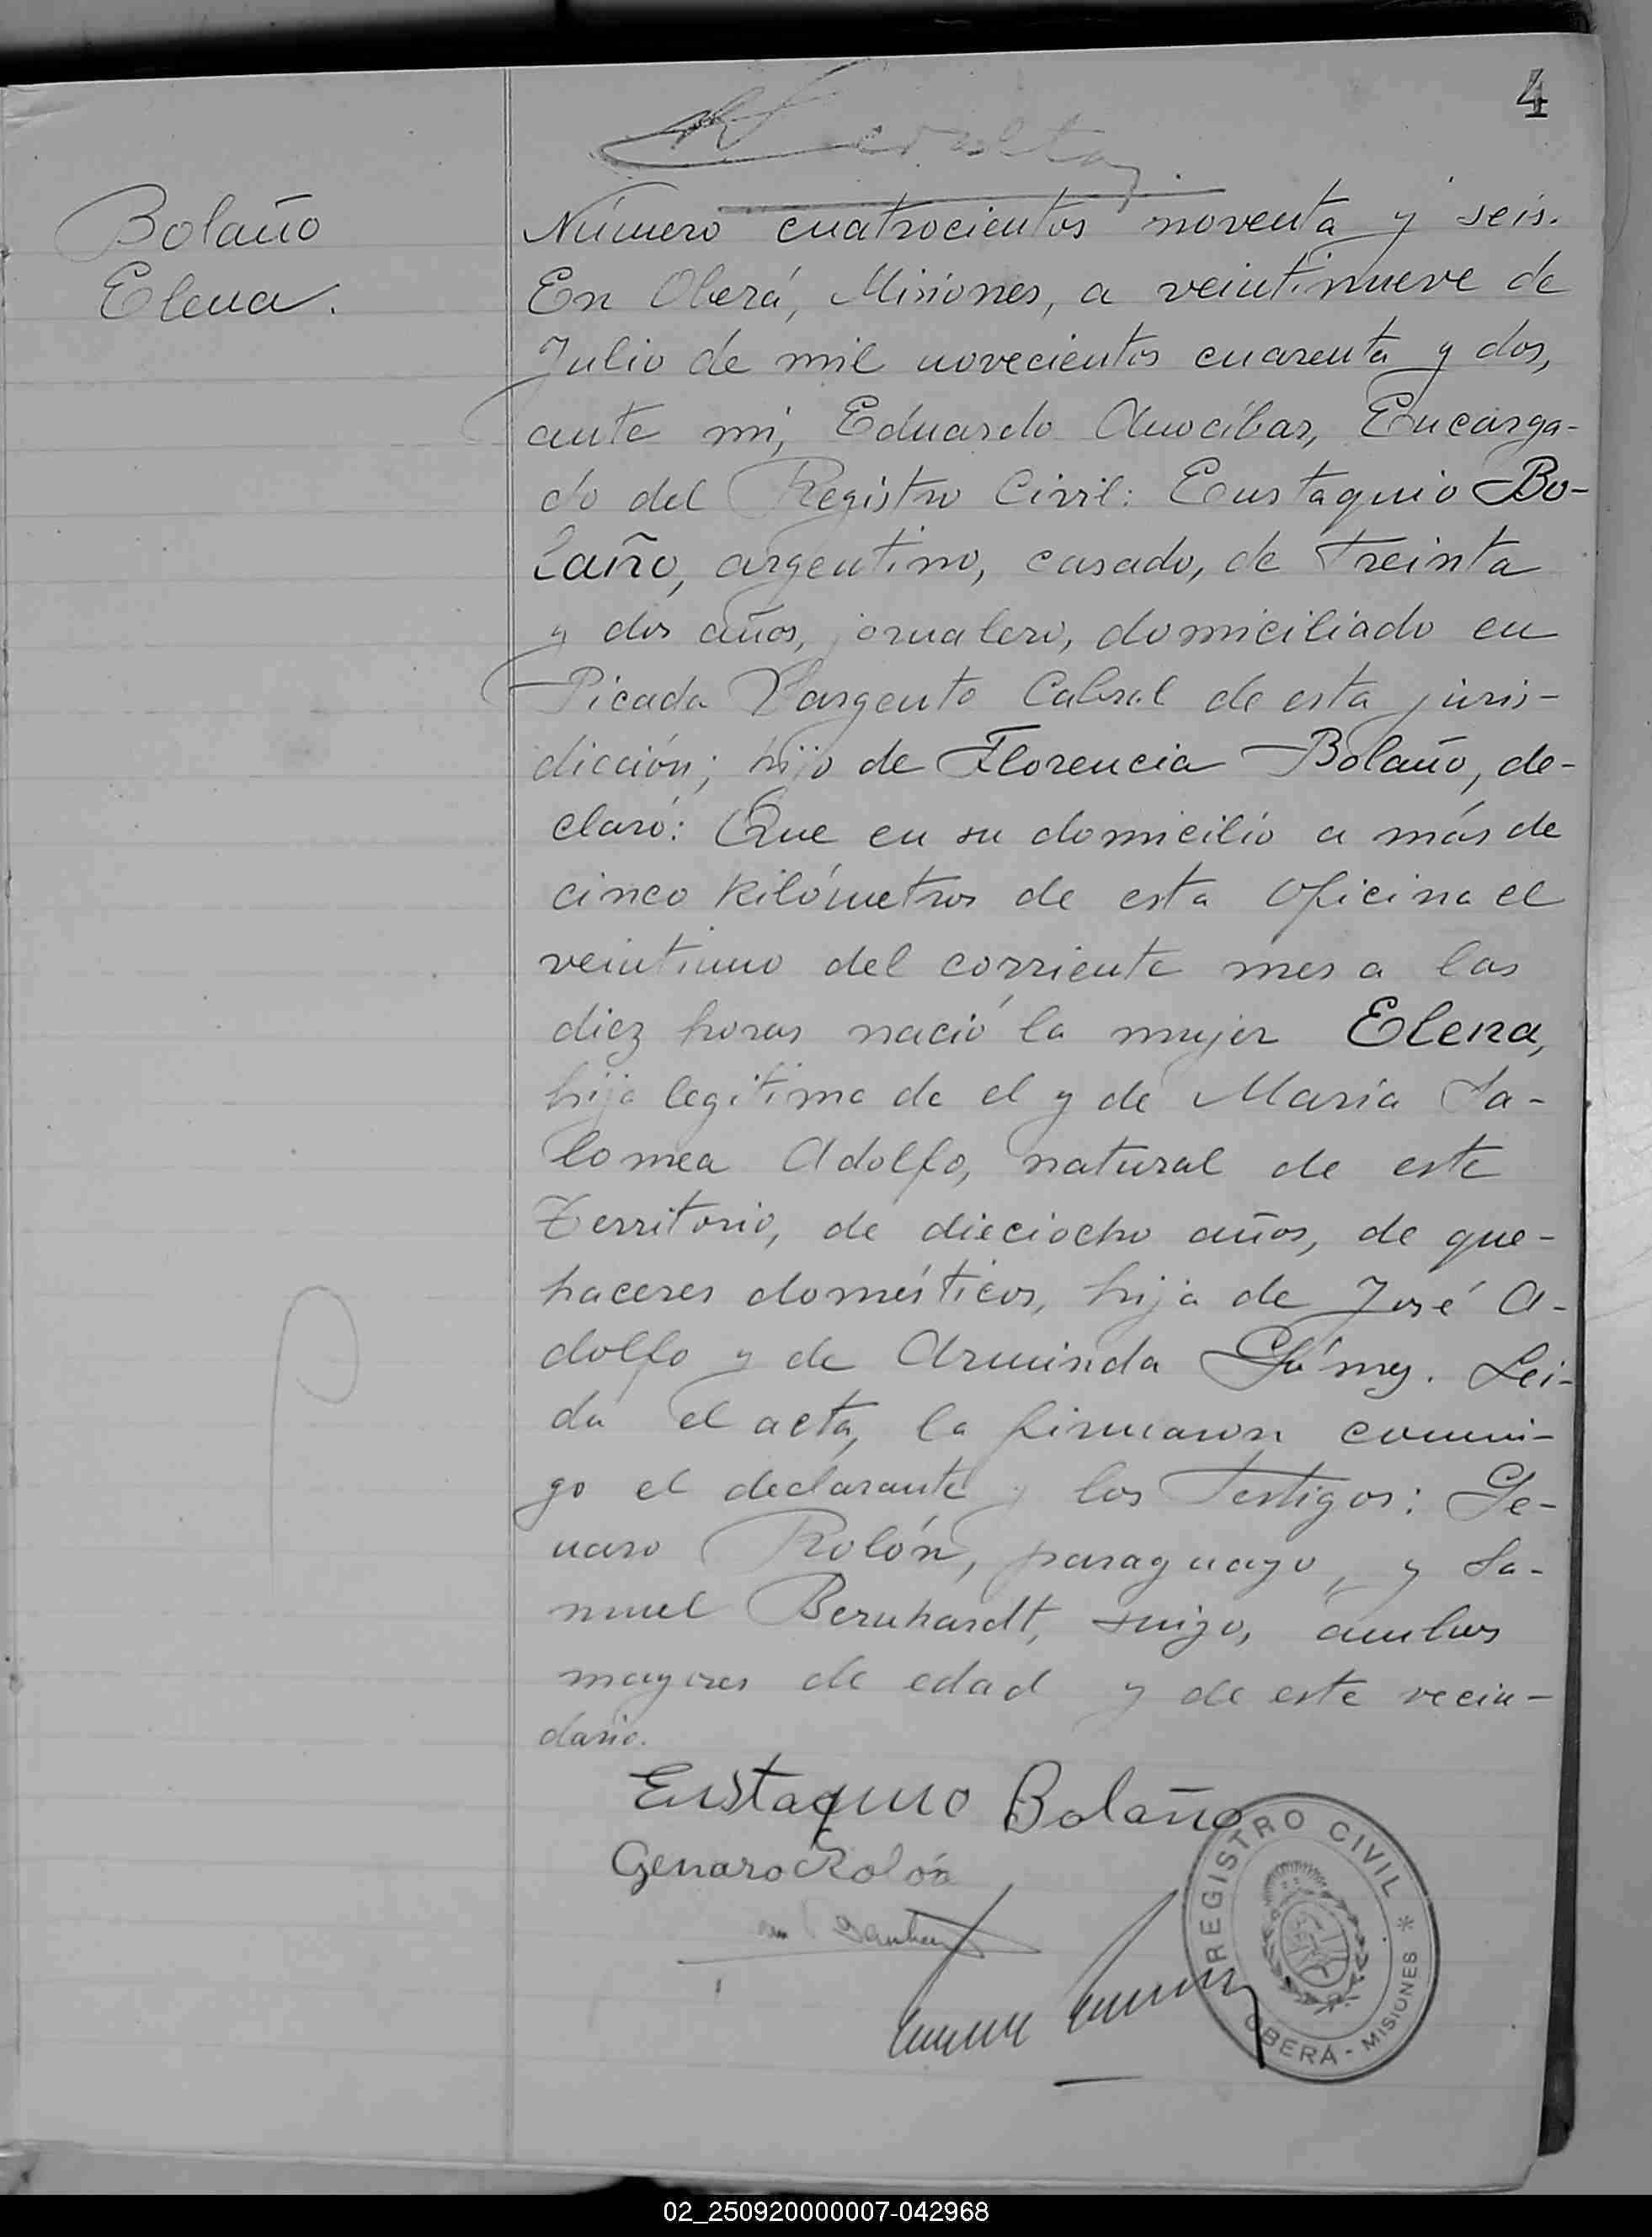 4
Bolaño
Elena.
Número cuatrocientos noventa y seis.
En Oberá, Misiones, a veintinueve de
Julio de mil novecientos cuarenta y dos,
ante mi, Eduardo Amocíbar, Encarga-
do del Registro Civil: Eustaquio Bo-
laño, argentino, casado, de treinta
y dos años, jornalero, domiciliado en
Picada Sargento Cabral de esta juris-
dicción; hijo de Florencia Bolaño, de-
claró: Que en su domicilio a más de
cinco kilómetros de esta oficina el
veintiuno del corriente mes a las
diez horas nació la mujer Elena,
hija legitima de el y de María Sa-
lomea Adolfo, natural de este
Territorio, de dieciocho años, de que-
haceres domésticos, hija de José A-
dolfo y de Arminda Gómez. Lei-
da el acta, la firmaron conmi-
go el declarante y los testigos: Ge-
naro Rolón, paraguayo, y Sa-
muel Bernhardt, suizo, ambos
mayores de edad y de este vecin-
dario.
Eustaquio Bolaño
Genaro Rolón
REGISTRO CIVIL *
OBERÁ - MISIONES
02_250920000007-042968